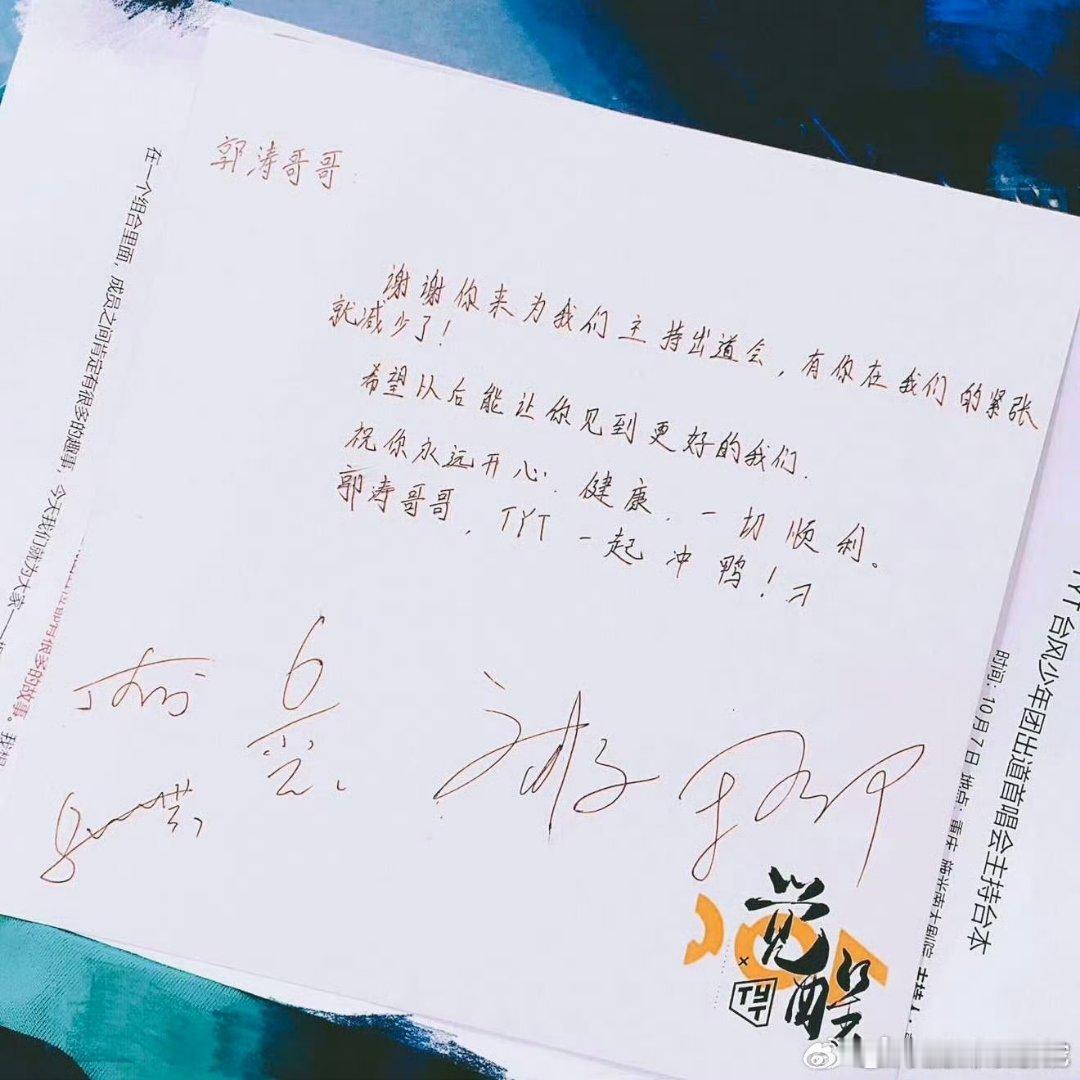 郭涛哥哥:
谢谢你来为我们主持出道会，有你在我们的紧张
就减少了！
希望以后能让你见到更好的我们.
祝你永远开心.健康.一切顺利。
郭涛哥哥，TYT一起冲鸭！
在一个组合里面，成员之间肯定有很多的趣事，今天我们就为大家一一
有很多的故事。我想
TYT台风少年团出道首唱会主持台本
时间：10月7日 地点：重庆 施光南大剧院 主持人：
觉醒
TYT